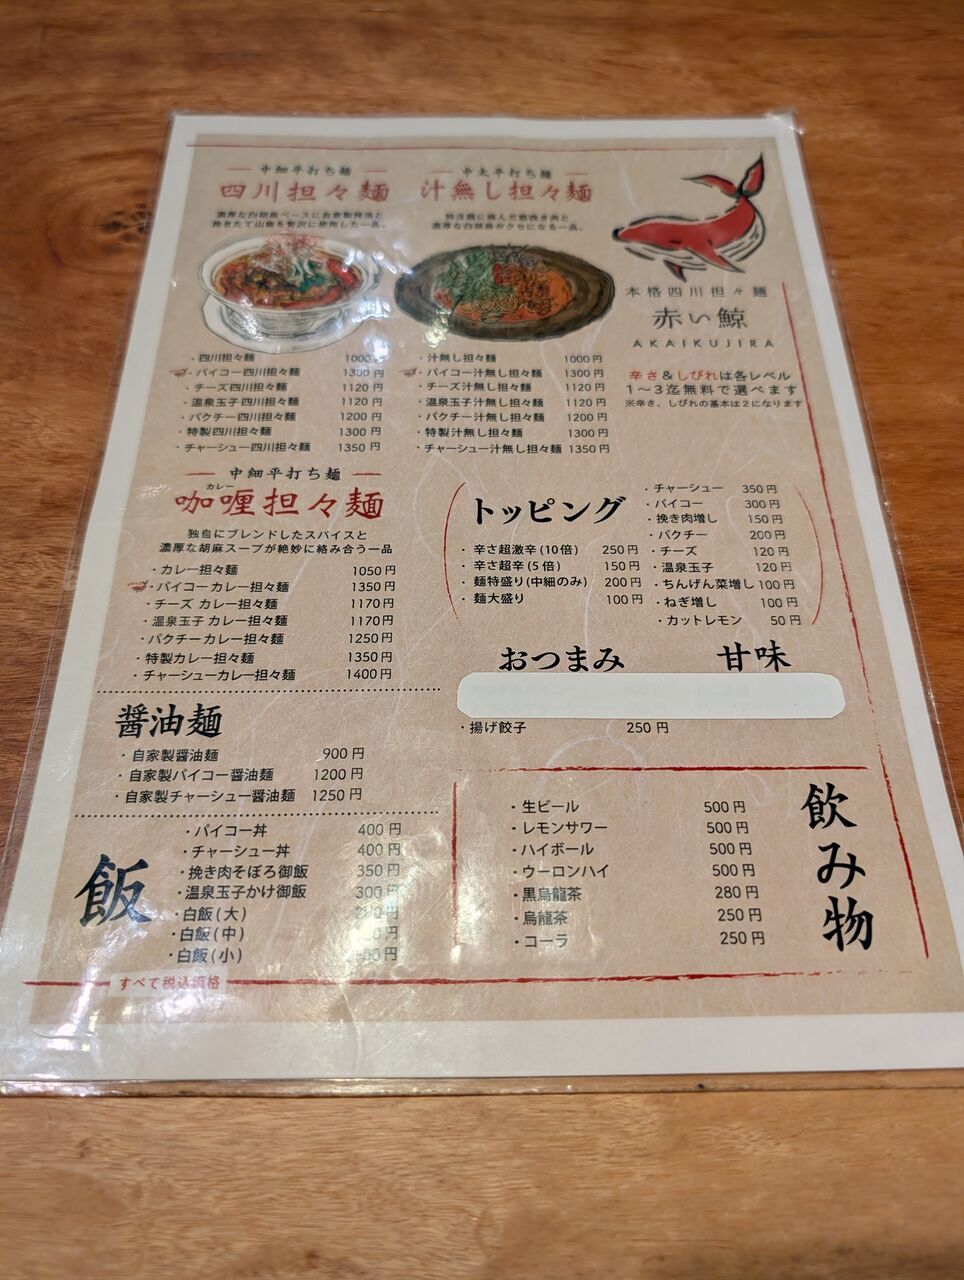 中細平打ち麺
四川担々麺
濃厚な白胡麻ベースに自家製辣油と
挽きたて山椒を贅沢に使用した一品。
・四川担々麺 1000円
・パイコー四川担々麺 1300円
・チーズ四川担々麺 1120円
・温泉玉子四川担々麺 1120円
・パクチー四川担々麺 1200円
・特製四川担々麺 1300円
・チャーシュー四川担々麺 1350円
中太平打ち麺
汁無し担々麺
濃厚な白胡麻がクセになる一品。
・汁無し担々麺 1000円
・パイコー汁無し担々麺 1300円
・チーズ汁無し担々麺 1120円
・温泉玉子汁無し担々麺 1120円
・パクチー汁無し担々麺 1200円
・特製汁無し担々麺 1300円
・チャーシュー汁無し担々麺 1350円
本格四川担々麺
赤い鯨
AKAIKUJIRA
辛さ&しびれは各レベル
1〜3迄無料で選べます
※辛さ、しびれの基本は2になります
中細平打ち麺
カレー
咖喱担々麺
独自にブレンドしたスパイスと
濃厚な胡麻スープが絶妙に絡み合う一品
・カレー担々麺 1050円
・パイコーカレー担々麺 1350円
・チーズ カレー担々麺 1170円
・温泉玉子 カレー担々麺 1170円
・パクチーカレー担々麺 1250円
・特製カレー担々麺 1350円
・チャーシューカレー担々麺 1400円
トッピング
・辛さ超激辛(10倍) 250円
・辛さ超辛(5倍) 150円
・麺特盛り(中細のみ) 200円
・麺大盛り 100円
・チャーシュー 350円
・パイコー 300円
・挽き肉増し 150円
・パクチー 200円
・チーズ 120円
・温泉玉子 120円
・ちんげん菜増し 100円
・ねぎ増し 100円
・カットレモン 50円
おつまみ
甘味
・揚げ餃子 250円
醤油麺
・自家製醤油麺 900円
・自家製パイコー醤油麺 1200円
・自家製チャーシュー醤油麺 1250円
飯
・パイコー丼 400円
・チャーシュー丼 400円
・挽き肉そぼろ御飯 350円
・温泉玉子かけ御飯 300円
・白飯(大)
・白飯(中)
・白飯(小)
すべて税込価格
飲み物
・生ビール 500円
・レモンサワー 500円
・ハイボール 500円
・ウーロンハイ 500円
・黒烏龍茶 280円
・烏龍茶 250円
・コーラ 250円